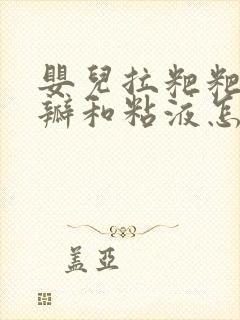 嬰兒拉粑粑
瓣和粘液怎
蓋亞